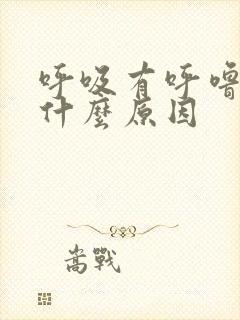 呼吸有呼嚕
什麼原因
嵩戰